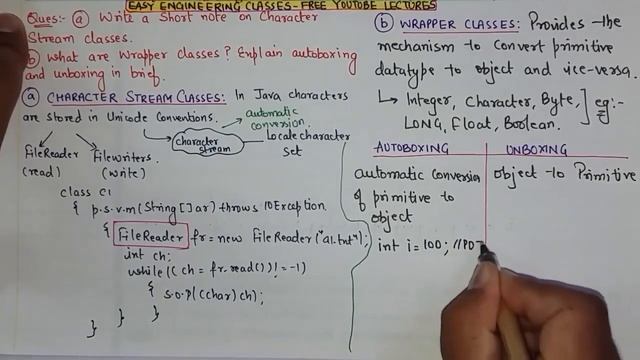 EASY ENGINEERING CLASSES - FREE YOUTUBE LECTURES
Ques: (a) Write a Short note on Character
Stream classes.
(b) What are Wrapper classes? Explain autoboxing
and unboxing in brief.
(a) CHARACTER STREAM CLASSES: In Java characters
are stored in Unicode Conventions.
automatic
conversion.
character
stream
Locale character
set
FileReader
(read)
FileWriters.
(write)
class C1
{ p.s.v.m(String[]ar) throws IOException
{ FileReader fr = new FileReader("a1.txt");
int ch;
while((ch = fr.read()) != -1)
{ S.O.P((char)ch);
} } }
(b) WRAPPER CLASSES: Provides the
mechanism to convert primitive
datatype to object and vice-versa.
Integer, Character, Byte,
LONG, Float, Boolean.
eg:-
AUTOBOXING
automatic conversion
of primitive to
object
int i = 100; //PDT
UNBOXING
object to Primitive